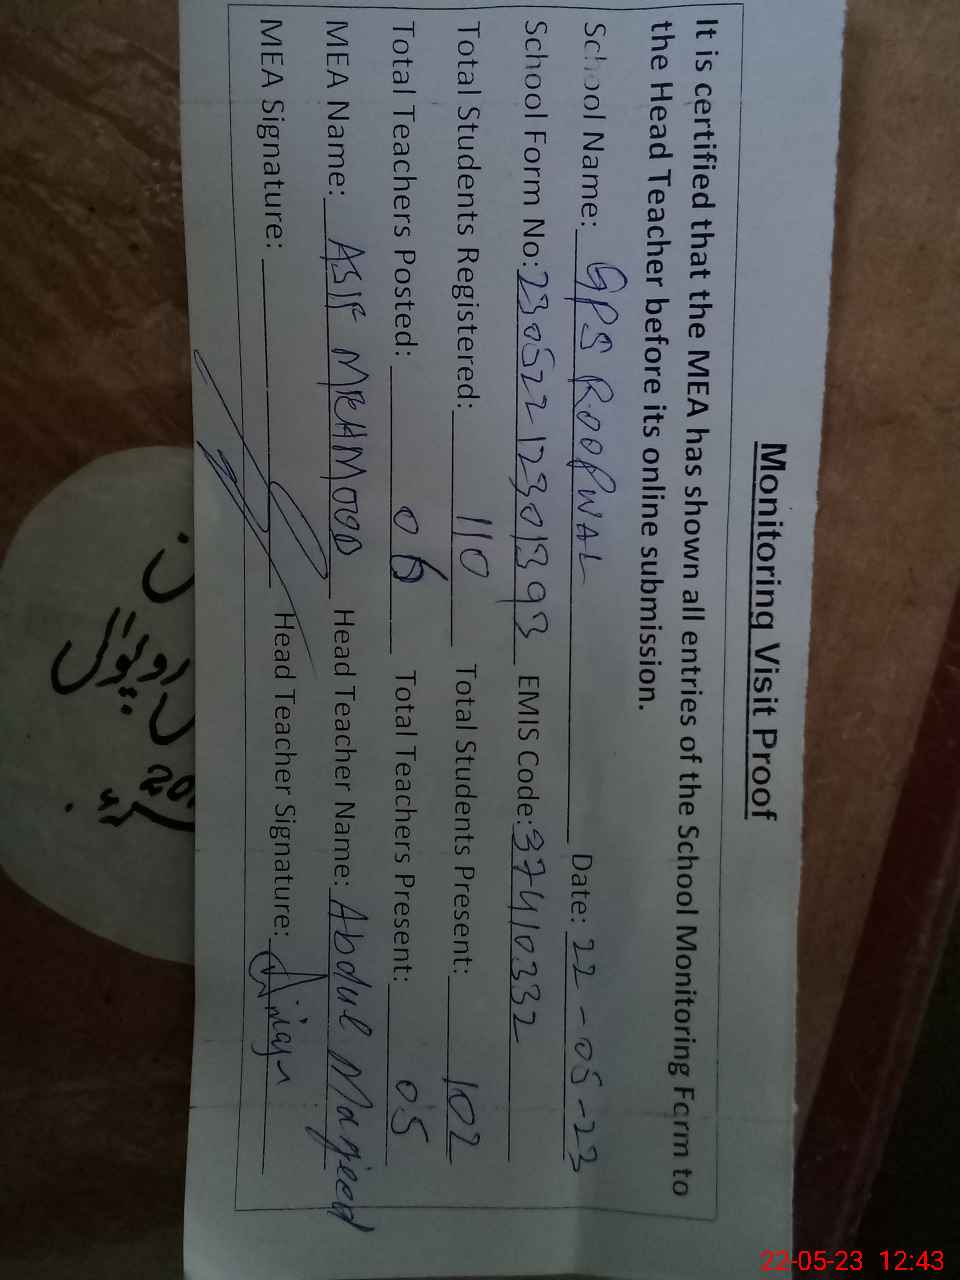 Monitoring Visit Proof
It is certified that the MEA has shown all entries of the School Monitoring Form to
the Head Teacher before its online submission.
School Name: GPS ROOPWAL Date: 22-05-23
School Form No: 23052212301393 EMIS Code: 37410332
Total Students Registered: 110 Total Students Present: 102
Total Teachers Posted: 06 Total Teachers Present: 05
MEA Name: ASIF MEHMOOD Head Teacher Name: Abdul Majeed
MEA Signature: Head Teacher Signature:
22-05-23 12:43